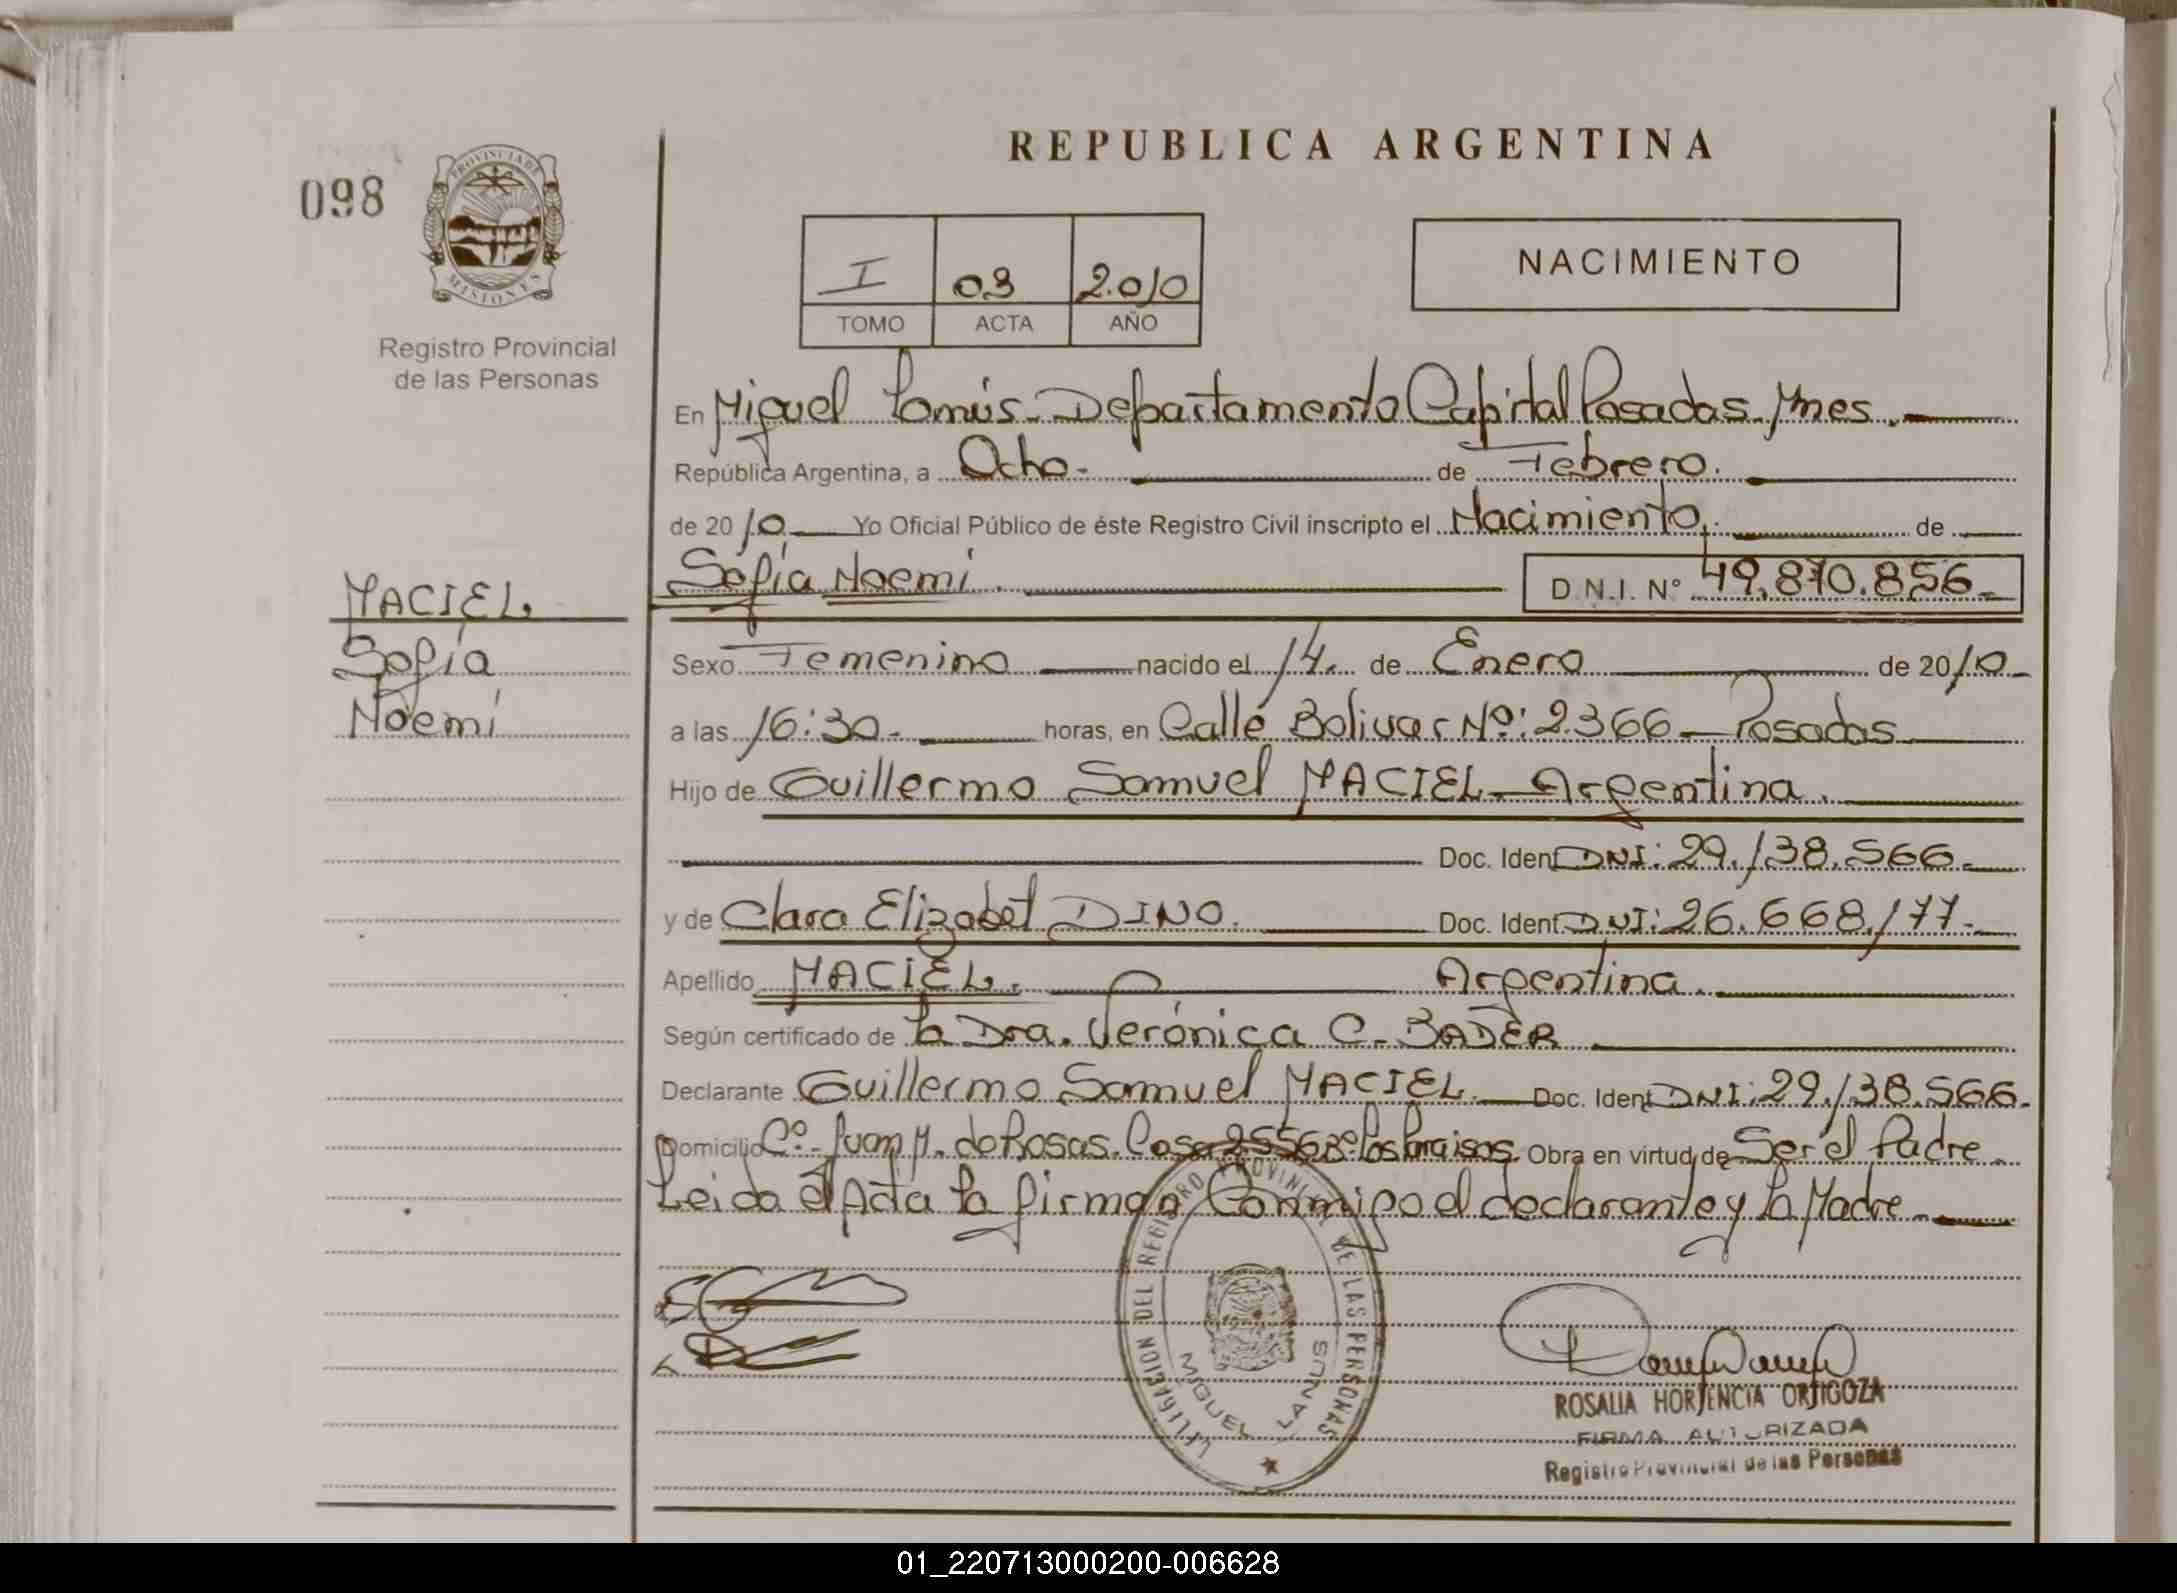 REPUBLICA ARGENTINA
098
PROVINCIA DE
MISIONES
Registro Provincial
de las Personas
I 03 2.010
TOMO ACTA AÑO
NACIMIENTO
En Miguel Lanús - Departamento Capital Posadas Mnes.
República Argentina, a Ocho - de Febrero.
de 2010 Yo Oficial Público de éste Registro Civil inscripto el Nacimiento de
Sofía Noemí. D.N.I. Nº 49.870.856.-
MACIEL
Sofía
Noemí
Sexo Femenino nacido el 14. de Enero de 2010
a las 16:30. horas, en Calle Bolivar Nº: 2366 - Posadas
Hijo de Guillermo Samuel MACIEL - Argentina.
Doc. Ident DNI: 29.138.566.-
y de Clara Elizabet DINO. Doc. Ident DNI: 26.668.177.-
Apellido MACIEL. Argentina.
Según certificado de la Dra. Verónica C. BADER
Declarante Guillermo Samuel MACIEL Doc. Ident DNI: 29.138.566.
Domicilio Cº. Juan M. de Rosas. Casa 2556 Bº Los Paraisos Obra en virtud de Ser el Padre.
Leida el Acta la firman Conmigo el declarante y la Madre.
DELEGACION DEL REGISTRO PROVINCIAL DE LAS PERSONAS
MIGUEL LANUS
ROSALIA HORTENCIA ORTIGOZA
FIRMA AUTORIZADA
Registro Provincial de las Personas
01_220713000200-006628